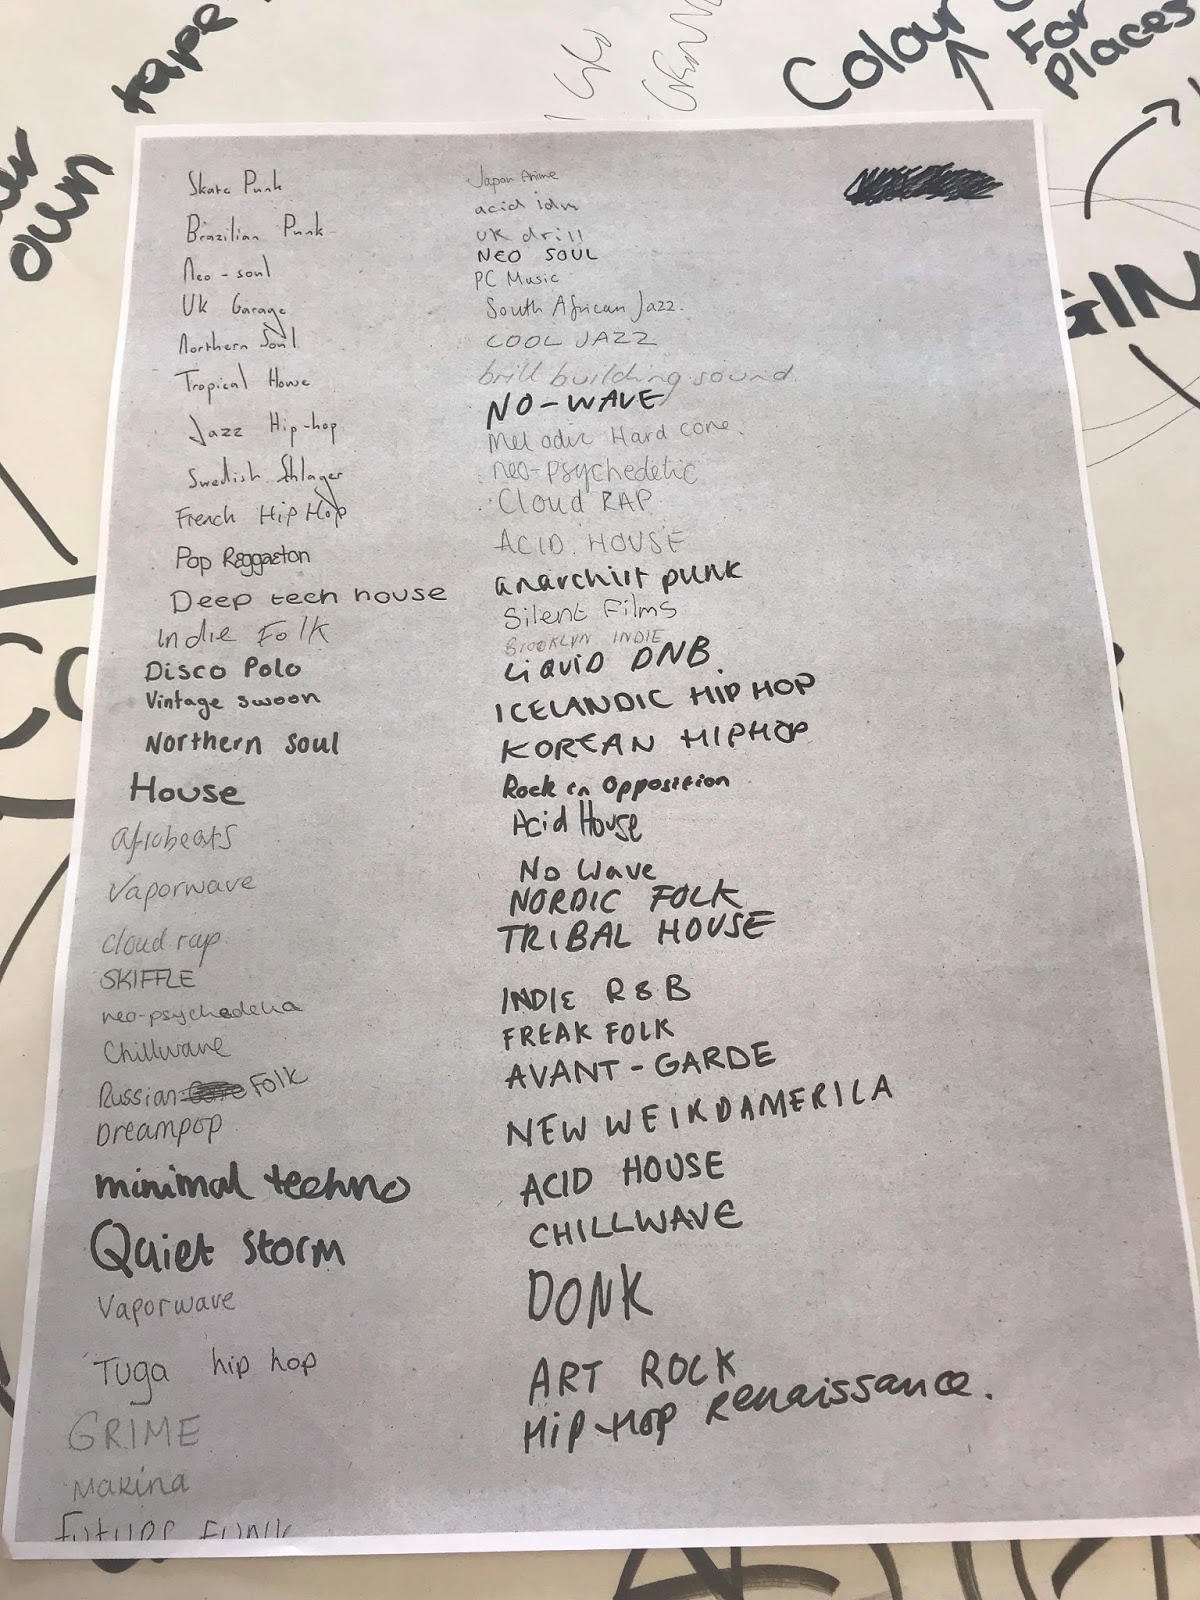 tape
own
Colour
For
Places
GIN
Co
Skate Punk
Brazilian Punk
Neo-soul
UK Garage
Northern Soul
Tropical House
Jazz Hip-hop
Swedish Shlager
French Hip Hop
Pop Reggaeton
Deep tech house
Indie Folk
Disco Polo
Vintage swoon
Northern Soul
House
Afrobeats
Vaporwave
cloud rap
SKIFFLE
neo-psychedelia
Chillwave
Russian Folk
Dreampop
minimal techno
Quiet storm
Vaporwave
Tuga hip hop
GRIME
Makina
Future Funk
Japan Anime
acid idm
UK drill
NEO SOUL
PC Music
South African Jazz.
COOL JAZZ
brill building sound
NO-WAVE
Melodic Hard core.
neo-psychedelic
Cloud RAP
ACID HOUSE
anarchist punk
Silent Films
BROOKLYN INDIE
LIQUID DNB
ICELANDIC HIP HOP
KOREAN HIPHOP
Rock in Opposition
Acid House
No Wave
NORDIC FOLK
TRIBAL HOUSE
INDIE R&B
FREAK FOLK
AVANT-GARDE
NEW WEIRD AMERICA
ACID HOUSE
CHILLWAVE
DONK
ART ROCK
HIP-HOP Renaissance.